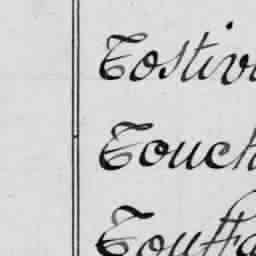 Tostiv
Touch
Touffa